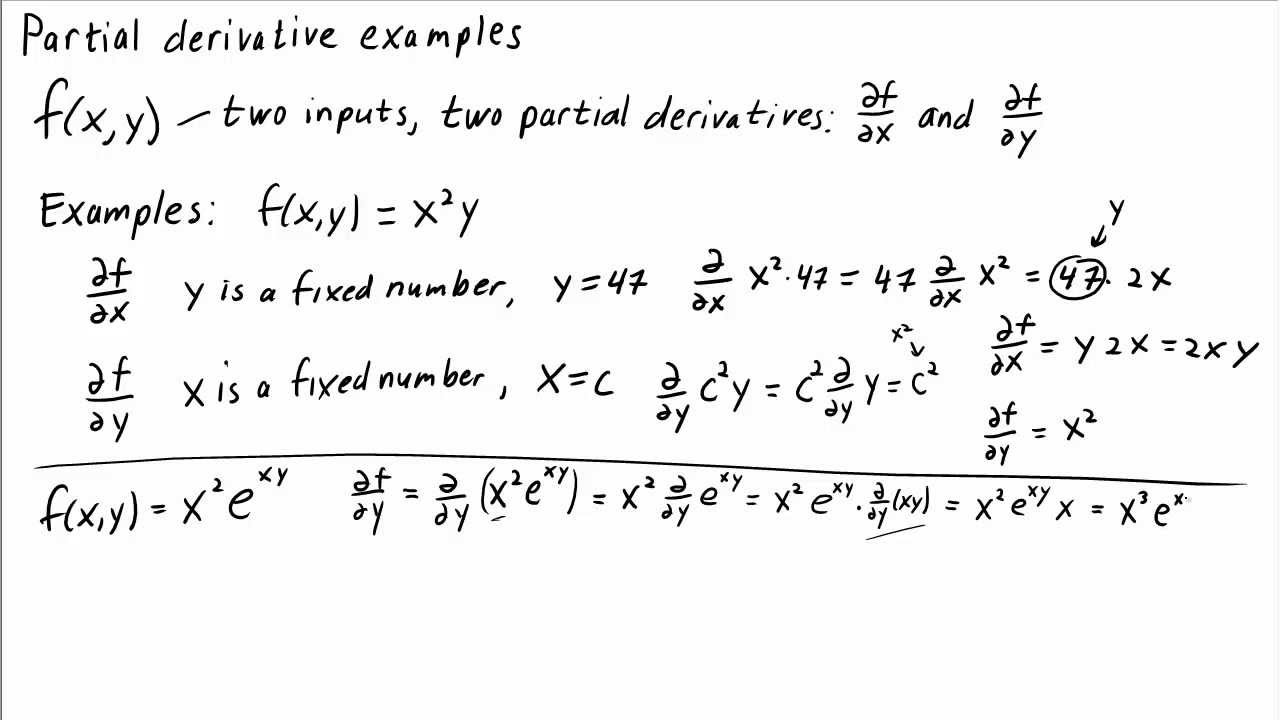 Partial derivative examples
f(x,y) — two inputs, two partial derivatives: ∂f/∂x and ∂f/∂y
Examples: f(x,y) = x²y
y
∂f/∂x y is a fixed number, y = 47 ∂/∂x x²·47 = 47 ∂/∂x x² = 47 · 2x
∂f/∂x = y 2x = 2xy
x²
∂f/∂y x is a fixed number, x = c ∂/∂y c²y = c² ∂/∂y y = c²
∂f/∂y = x²
f(x,y) = x²e^xy ∂f/∂y = ∂/∂y (x²e^xy) = x² ∂/∂y e^xy = x² e^xy · ∂/∂y (xy) = x² e^xy x = x³ e^x